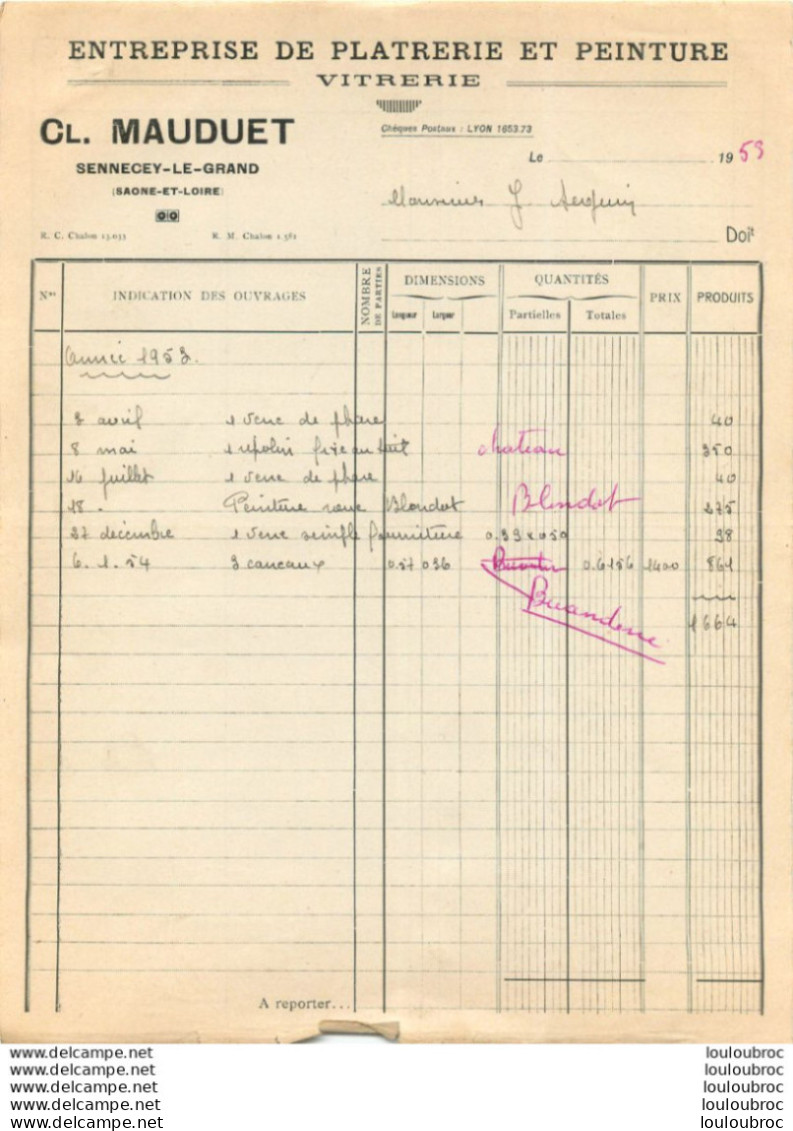 ENTREPRISE DE PLATRERIE ET PEINTURE
VITRERIE
CL. MAUDUET
SENNECEY-LE-GRAND
(SAONE-ET-LOIRE)
R. C. Chalon 13.033 R. M. Chalon 1.581
Chèques Postaux : LYON 1653.73
Le 1953
Monsieur J.
Doit
Nos INDICATION DES OUVRAGES NOMBRE DE PARTIES DIMENSIONS QUANTITÉS PRIX PRODUITS
Longueur Largeur Partielles Totales
Année 1953.
3 avril 1 verre de phare 40
8 mai 1 ripolin château 350
16 juillet 1 verre de phare 40
18 - Peinture Blondat Blondat 275
27 décembre 1 verre simple fourniture 0.39 x 0.50 98
6.1.54 3 carreaux 0.57 0.36 0.6156 1400 861
Buanderie
1664
A reporter...
www.delcampe.net louloubroc
www.delcampe.net louloubroc
www.delcampe.net louloubroc
www.delcampe.net louloubroc
www.delcampe.net louloubroc